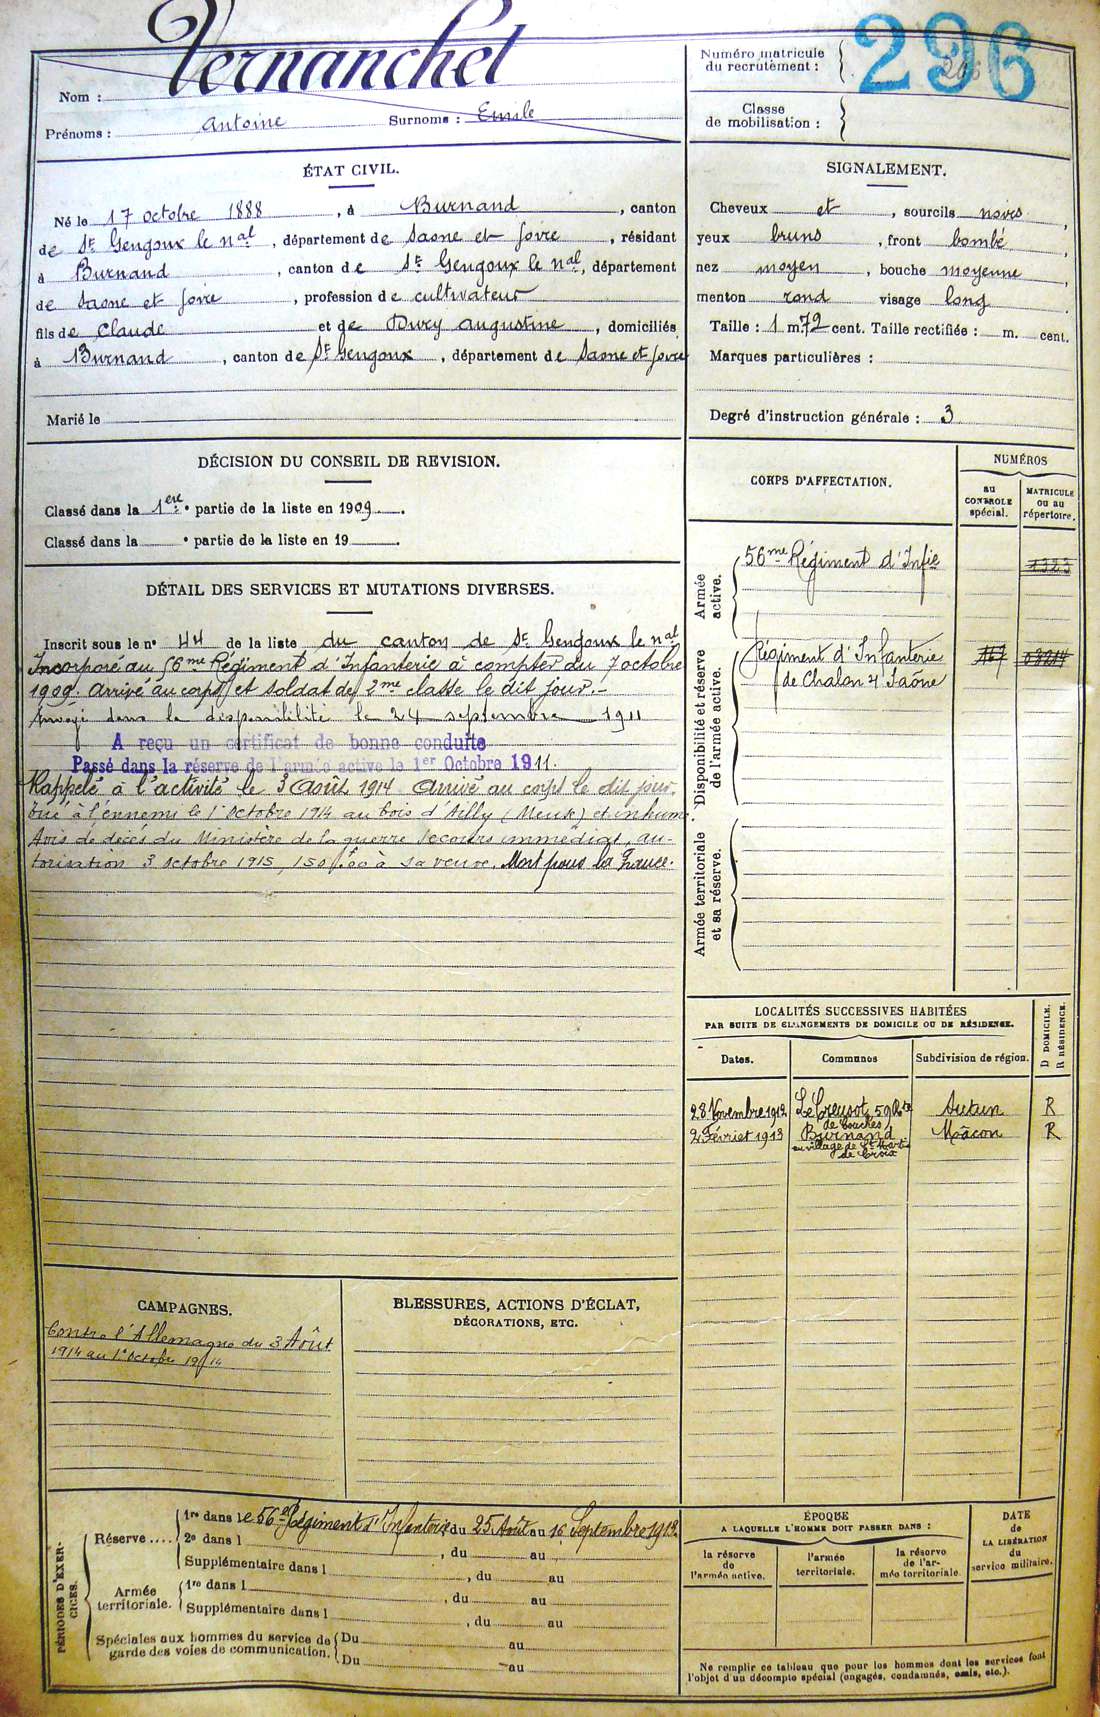 Vernanchet
Nom :
Prénoms : Antoine Surnoms : Emile
Numéro matricule
du recrutement : 296
Classe
de mobilisation :
ÉTAT CIVIL.
Né le 17 octobre 1888, à Burnand, canton
de St Gengoux le nal, département de Saone et Loire, résidant
à Burnand, canton de St Gengoux le nal, département
de Saone et Loire, profession de cultivateur
fils de Claude et de Dury Augustine, domiciliés
à Burnand, canton de St Gengoux, département de Saone et Loire
Marié le
SIGNALEMENT.
Cheveux et, sourcils noirs,
yeux bruns, front bombé
nez moyen, bouche moyenne
menton rond visage long
Taille : 1 m. 72 cent. Taille rectifiée : m. cent.
Marques particulières :
Degré d'instruction générale : 3
DÉCISION DU CONSEIL DE REVISION.
Classé dans la 1ere • partie de la liste en 1909.
Classé dans la • partie de la liste en 19
DÉTAIL DES SERVICES ET MUTATIONS DIVERSES.
Inscrit sous le no 44 de la liste du canton de St Gengoux le nal
Incorporé au 56me Régiment d'Infanterie à compter du 7 octobre
1909. Arrivé au corps et soldat de 2me classe le dit jour.-
Envoyé dans la disponibilité le 24 septembre 1911
A reçu un certificat de bonne conduite
Passé dans la réserve de l'armée active le 1er Octobre 1911.
Rappelé à l'activité le 3 Août 1914 Arrivé au corps le dit jour.
Tué à l'ennemi le 1er Octobre 1914 au bois d'Ailly (Meuse) et inhumé
Avis de décès du Ministère de la guerre Secours immédiat, au-
torisation 3 octobre 1915, 150f.00 à sa veuve. Mort pour la France.
CORPS D'AFFECTATION.
NUMÉROS
au
CONTROLE
spécial.
MATRICULE
ou au
répertoire.
Armée
active.
56me Régiment d'Infie
1323
Disponibilité et réserve
de l'armée active.
Régiment d'Infanterie
de Chalon s/ Saône
Armée territoriale
et sa réserve.
LOCALITÉS SUCCESSIVES HABITÉES
PAR SUITE DE CHANGEMENTS DE DOMICILE OU DE RÉSIDENCE.
D DOMICILE.
R RÉSIDENCE.
Dates. Communes Subdivision de région.
28 Novembre 1912 Le Creusot, 59 Rte Autun R
de Couches
2 Février 1913 Burnand Mâcon R
au village de St Martin
de Croix
CAMPAGNES.
Contre l'Allemagne du 3 Août
1914 au 1er Octobre 1914
BLESSURES, ACTIONS D'ÉCLAT,
DÉCORATIONS, ETC.
PÉRIODES D'EXER-
CICES.
Réserve ....
1re dans le 56e Régiment d'Infanterie du 25 Août au 16 Septembre 1913.
2e dans l , du au
Supplémentaire dans l , du au
Armée
territoriale.
1re dans l , du au
Supplémentaire dans l , du au
Spéciales aux hommes du service de
garde des voies de communication.
Du au
Du au
ÉPOQUE
A LAQUELLE L'HOMME DOIT PASSER DANS :
la réserve
de l'armée active.
l'armée
territoriale.
la réserve
de l'ar-
mée territoriale
DATE
de
LA LIBÉRATION
du
service militaire.
Ne remplir ce tableau que pour les hommes dont les services font
l'objet d'un décompte spécial (engagés, condamnés, omis, etc.).